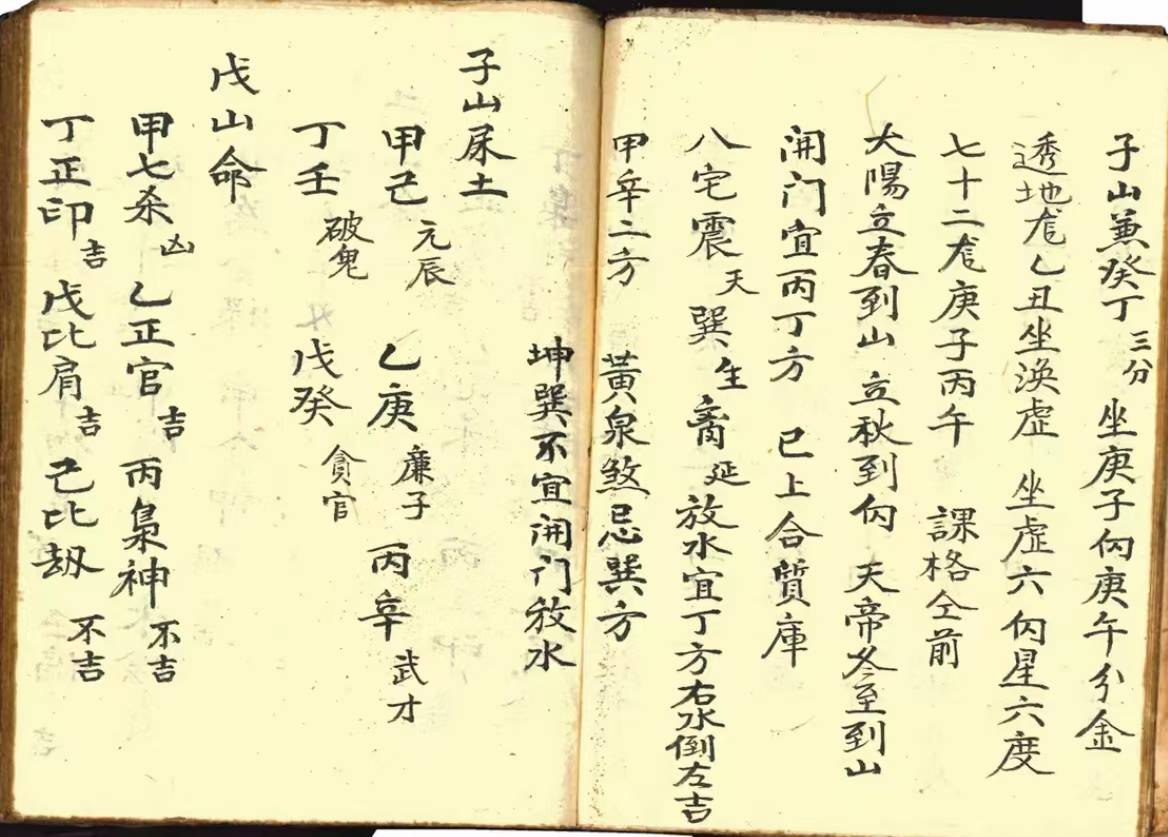 子山兼癸丁三分 坐庚子向庚午分金
透地龙乙丑坐渙虚 坐虚六向星六度
七十二龙庚子丙午 課格仝前
太陽立春到山 立秋到向 天帝冬至到山
開门宜丙丁方 已上合質庫
八宅震天 巽生 离延 放水宜丁方右水倒左吉
甲辛二方 黃泉煞忌巽方
坤巽不宜開门放水
子山屎土
甲己元辰 乙庚廉子 丙辛武才
丁壬破鬼 戊癸貪官
戊山命
甲七杀凶 乙正官吉 丙梟神不吉
丁正印吉 戊比肩吉 己比劫不吉